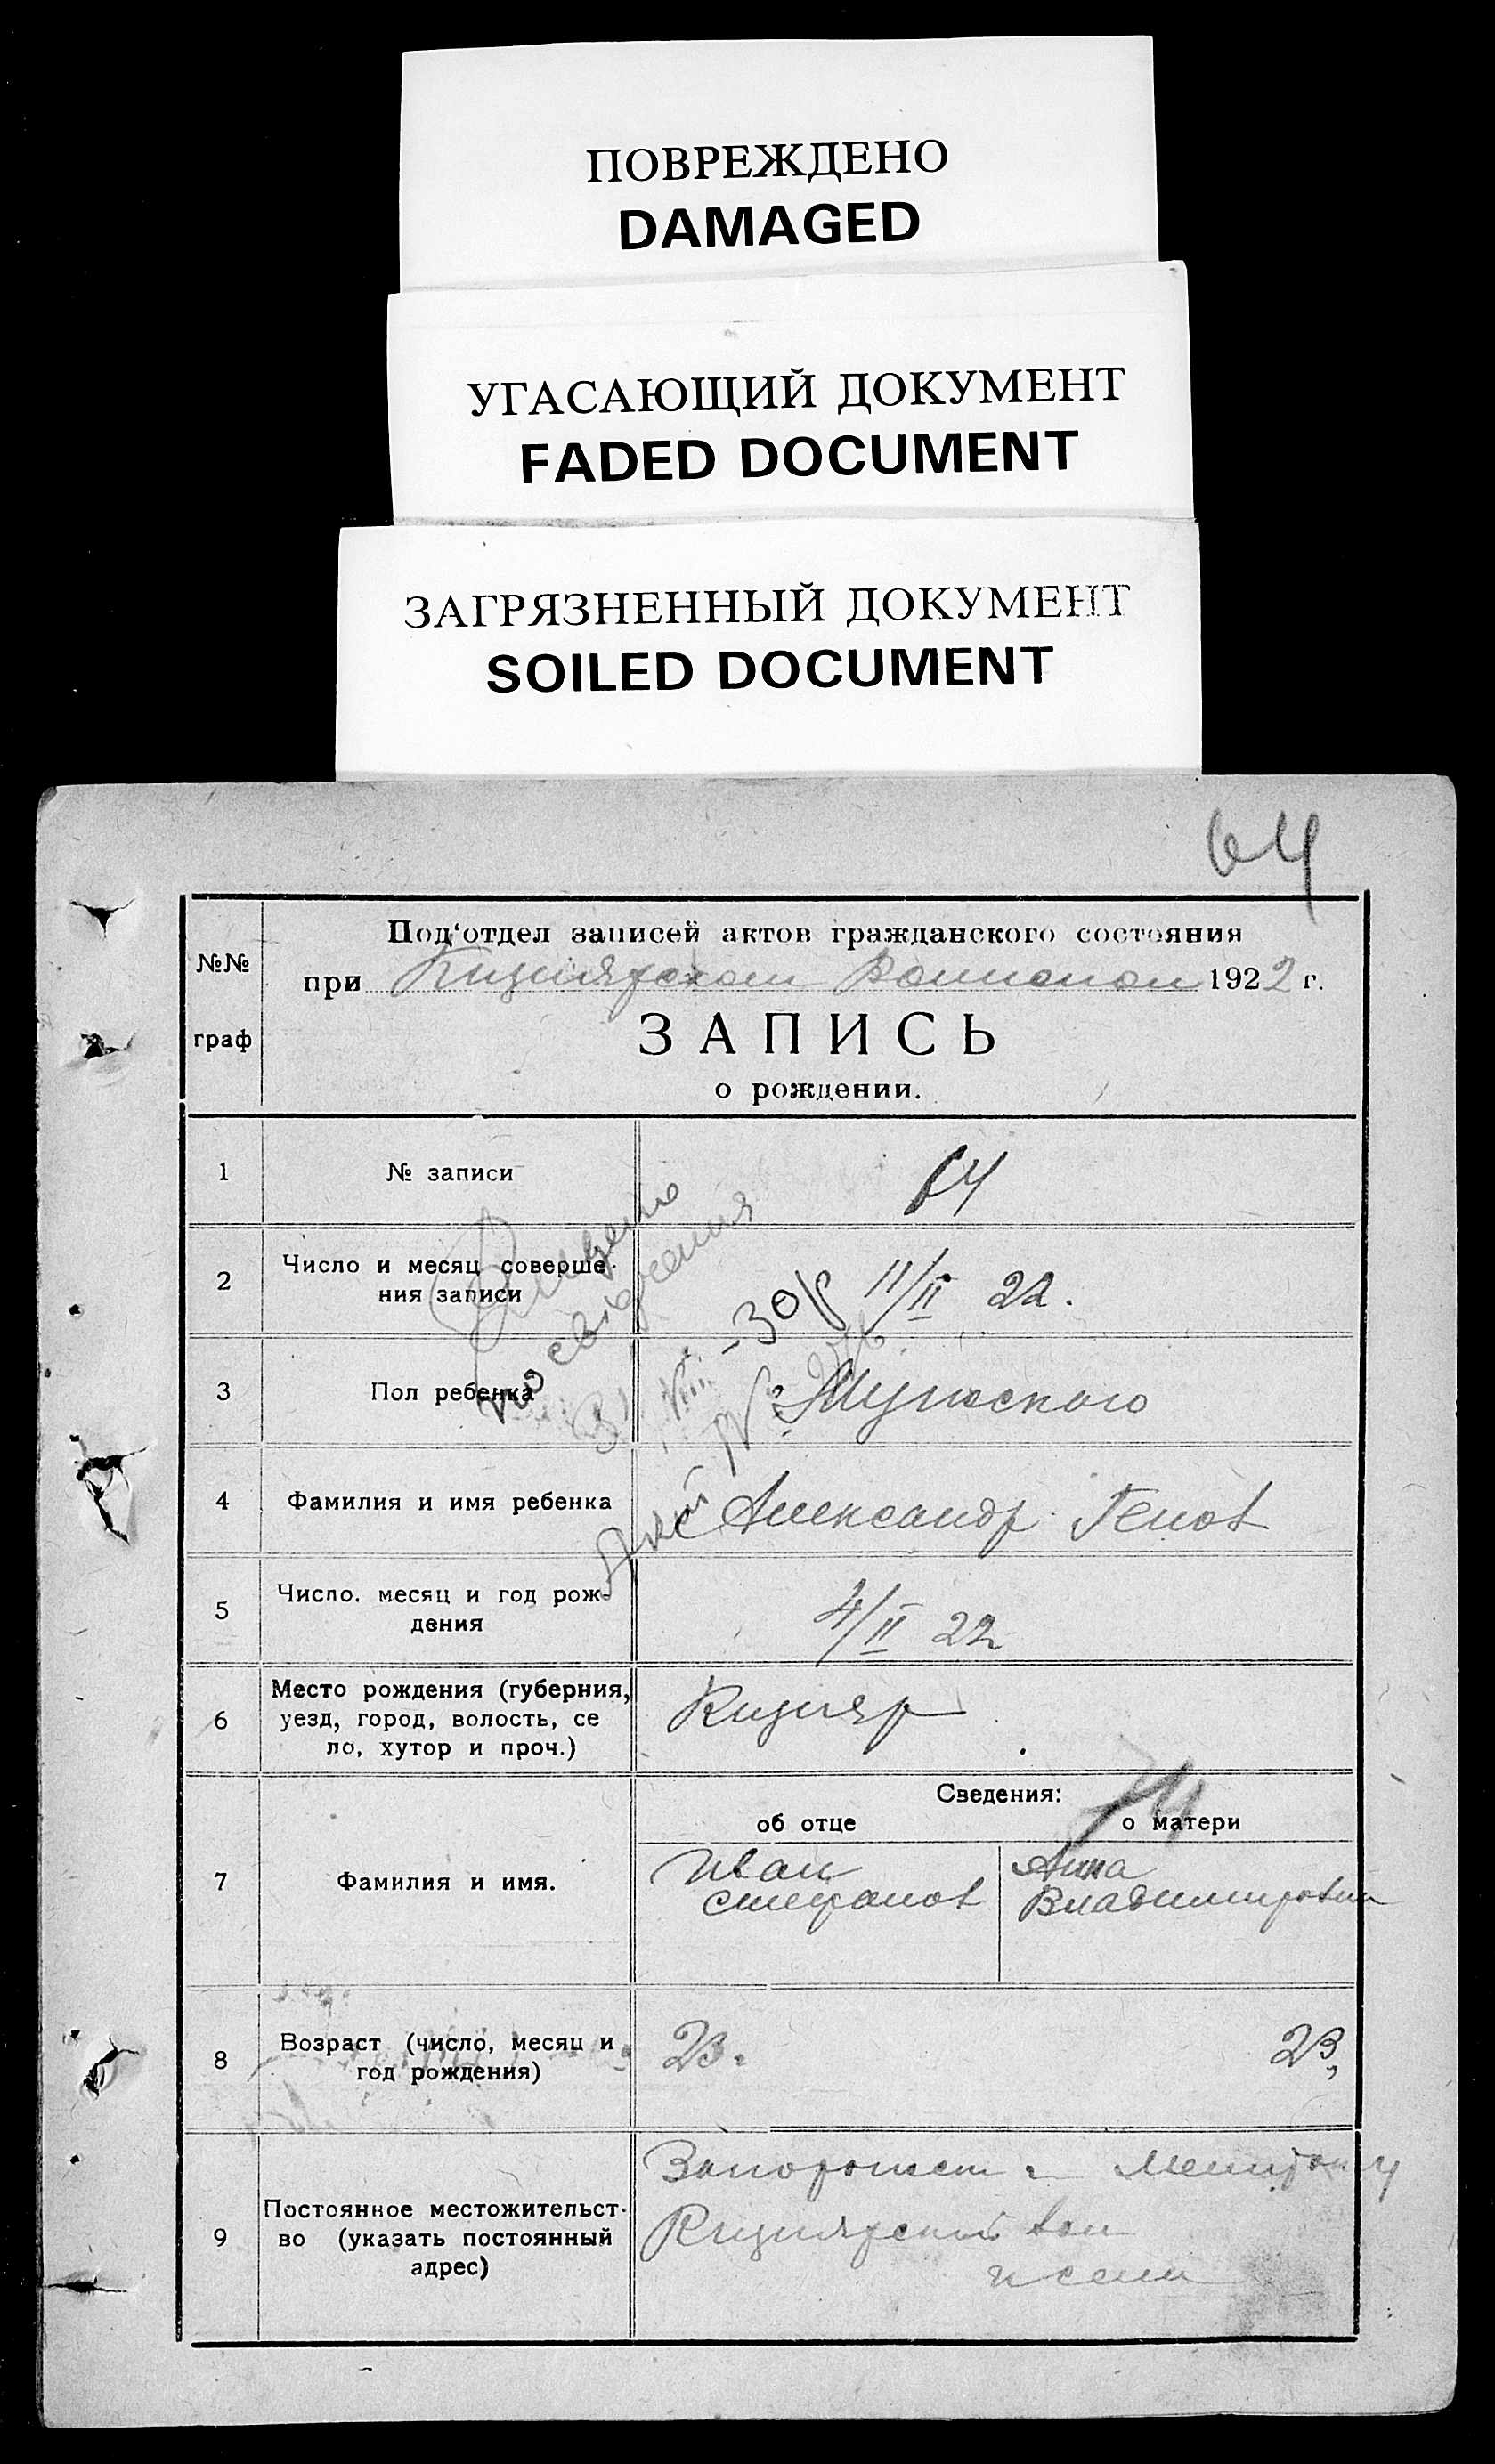 ПОВРЕЖДЕНО
DAMAGED
УГАСАЮЩИЙ ДОКУМЕНТ
FADED DOCUMENT
ЗАГРЯЗНЕННЫЙ ДОКУМЕНТ
SOILED DOCUMENT
64
№№
граф
Под‘отдел записей актов гражданского состояния
при Кизиярском 1922 г.
ЗАПИСЬ
о рождении.
1 № записи 64
2 Число и месяц соверше-
ния записи 11/II 22.
3 Пол ребенка Мужского
4 Фамилия и имя ребенка Александр Генов
5 Число. месяц и год рож-
дения 4/II 22
6 Место рождения (губерния,
уезд, город, волость, се
ло, хутор и проч.) Кизияр
Сведения:
об отце о матери
7 Фамилия и имя. Иван
Стефанов
Анна
8 Возраст (число, месяц и
год рождения) 23. 23,
9 Постоянное местожительст-
во (указать постоянный
адрес)
Запорожск
Кизиярской вол